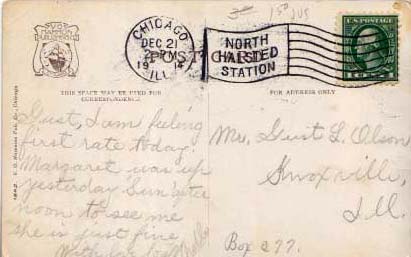 CHICAGO
DEC 21
ILL.
NORTH
HALSTED
STATION
POST CARD
U.S. POSTAGE
THIS SPACE MAY BE USED FOR
CORRESPONDENCE.
FOR ADDRESS ONLY
Gust, I am feeling
first rate today.
Margaret was up
yesterday Sun after
noon to see me
she is just fine
With love
Mr. Gust L. Olson
Knoxville,
Ill.
Box 277.